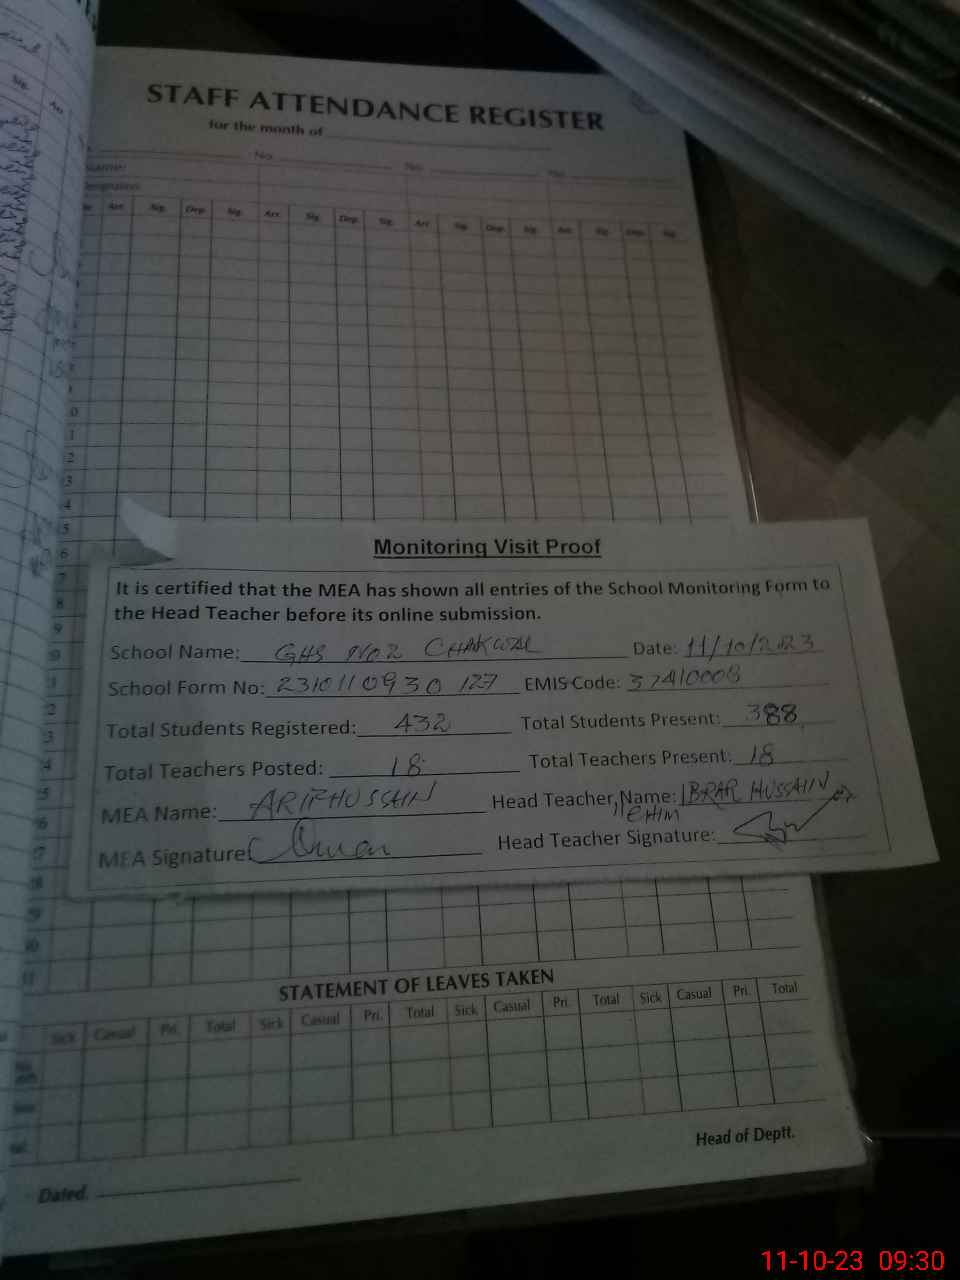 STAFF ATTENDANCE REGISTER
for the month of
No. No. No.
Name:
Designation
Arr. Sig. Dep. Sig. Arr. Sig. Dep. Sig. Arr. Sig. Dep. Sig. Arr. Sig. Dep. Sig.
Monitoring Visit Proof
It is certified that the MEA has shown all entries of the School Monitoring Form to
the Head Teacher before its online submission.
School Name: GHS NO.2 CHAKWAL Date: 11/10/2023
School Form No: 2310110930127 EMIS Code: 37410008
Total Students Registered: 432 Total Students Present: 388
Total Teachers Posted: 18 Total Teachers Present: 18
MEA Name: ARIF HUSSAIN Head Teacher Name: IBRAR HUSSAIN
MEA Signature: Head Teacher Signature:
STATEMENT OF LEAVES TAKEN
Sick Casual Pri. Total Sick Casual Pri. Total Sick Casual Pri. Total Sick Casual Pri. Total
Head of Deptt.
Dated.
11-10-23 09:30